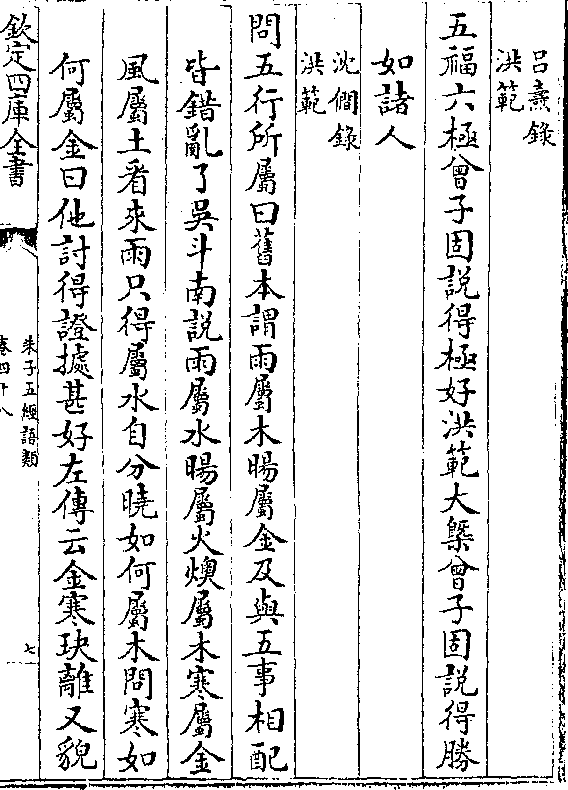 呂燾錄
洪範
五福六極曾子固説得極好洪範大槩曾子固説得勝
如諸人
沈僩錄
洪範
問五行所屬曰舊本謂雨屬木暘屬金及與五事相配
皆錯亂了吳斗南説雨屬水暘屬火燠屬木寒屬金
風屬土看來雨只得屬水自分曉如何屬木問寒如
何屬金曰他討得證據甚好左傳云金寒玦離又貌
欽定四庫全書
朱子五經語類
卷四十八
七